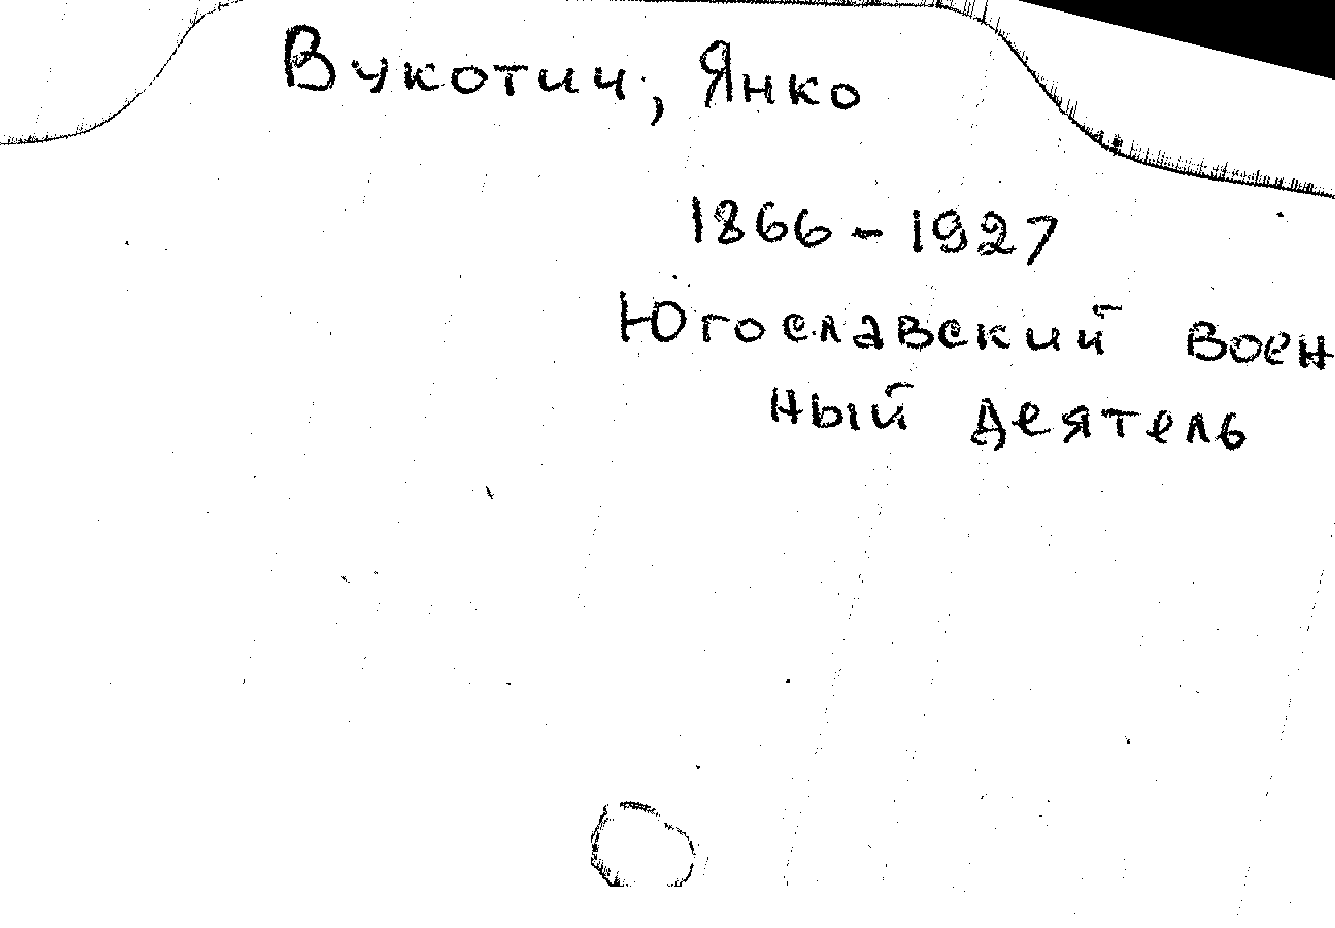 Вукотич, Янко
1866 - 1927
Югославский воен
ный деятель